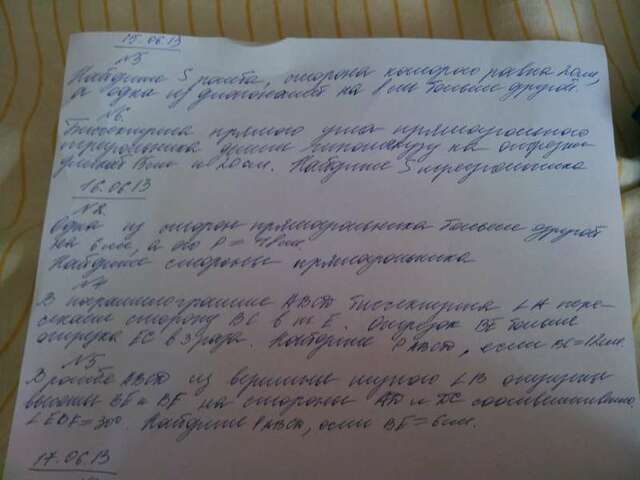 15.06.13
№5
Найдите S ромба, сторона которого равна 20см,
а одна из диагоналей на 8см больше другой.
№6.
Биссектриса прямого угла прямоугольного
треугольника делит гипотенузу на отрезки
длиной 15см и 20см. Найдите S треугольника
16.06.13
№2.
Одна из сторон прямоугольника больше другой
на 6см, а его P = 48см.
Найдите стороны прямоугольника
№4
В параллелограмме ABCD биссектриса ∠A пере-
секает сторону BC в т. E. Отрезок BE больше
отрезка EC в 3 раза. Найдите PABCD, если BC=12см.
№5
В ромбе ABCD из вершины тупого ∠B опущены
высоты BE и BF на стороны AD и DC соответственно
∠EBF=30°. Найдите PABCD, если BE=6см.
17.06.13